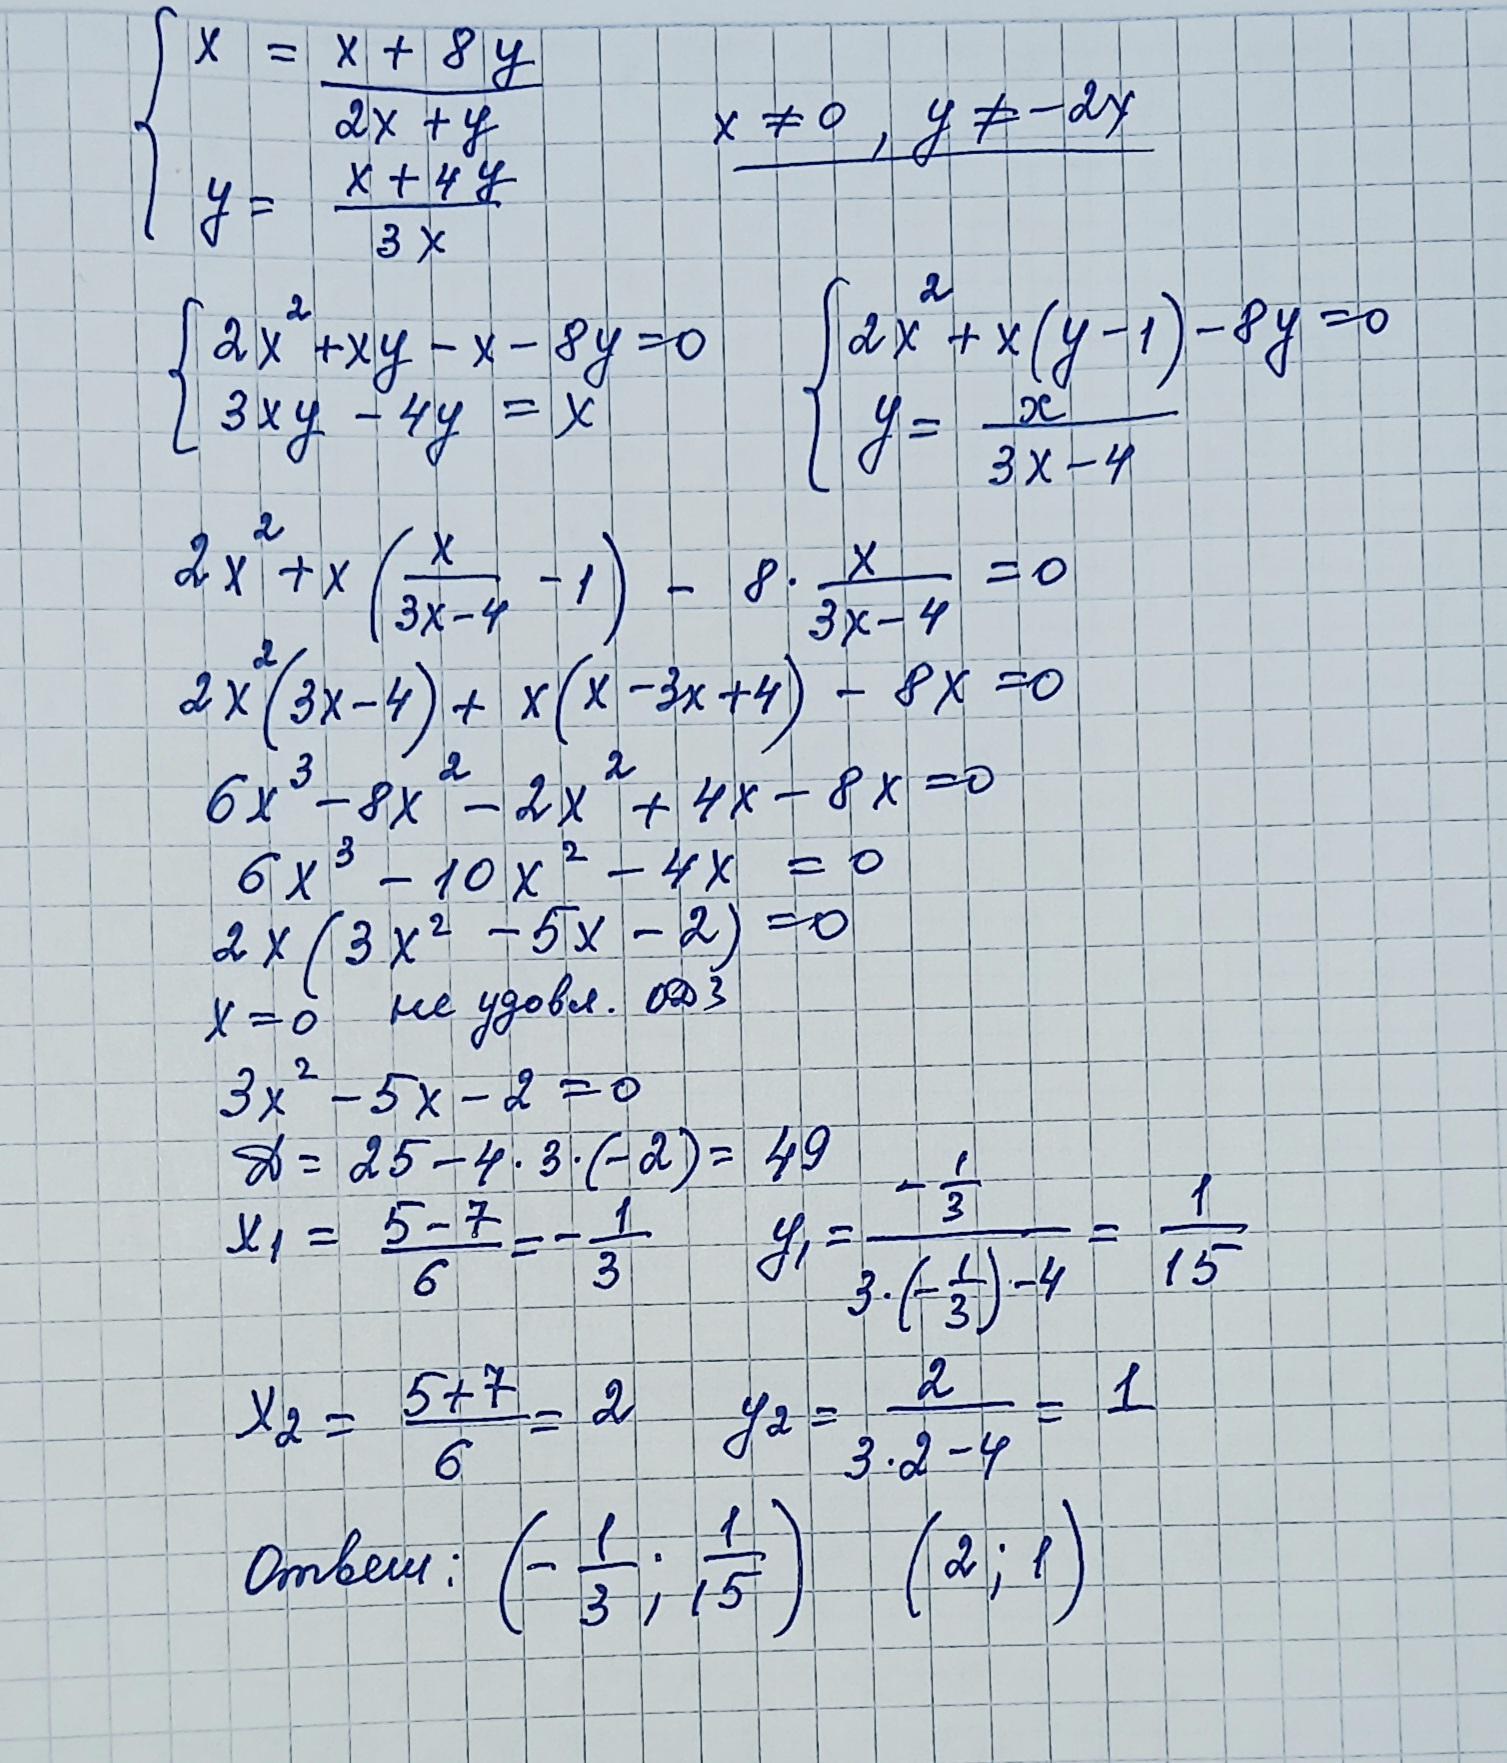 { x = (x + 8y)/(2x + y)
x ≠ 0, y ≠ -2x
y = (x + 4y)/(3x)
{ 2x² + xy - x - 8y = 0
3xy - 4y = x
{ 2x² + x(y - 1) - 8y = 0
y = x/(3x - 4)
2x² + x(x/(3x - 4) - 1) - 8 · x/(3x - 4) = 0
2x²(3x - 4) + x(x - 3x + 4) - 8x = 0
6x³ - 8x² - 2x² + 4x - 8x = 0
6x³ - 10x² - 4x = 0
2x(3x² - 5x - 2) = 0
x = 0 не удовл. ОДЗ
3x² - 5x - 2 = 0
D = 25 - 4 · 3 · (-2) = 49
x₁ = (5 - 7)/6 = -1/3 y₁ = (-1/3)/(3 · (-1/3) - 4) = 1/15
x₂ = (5 + 7)/6 = 2 y₂ = 2/(3 · 2 - 4) = 1
Ответ: (-1/3; 1/15) (2; 1)